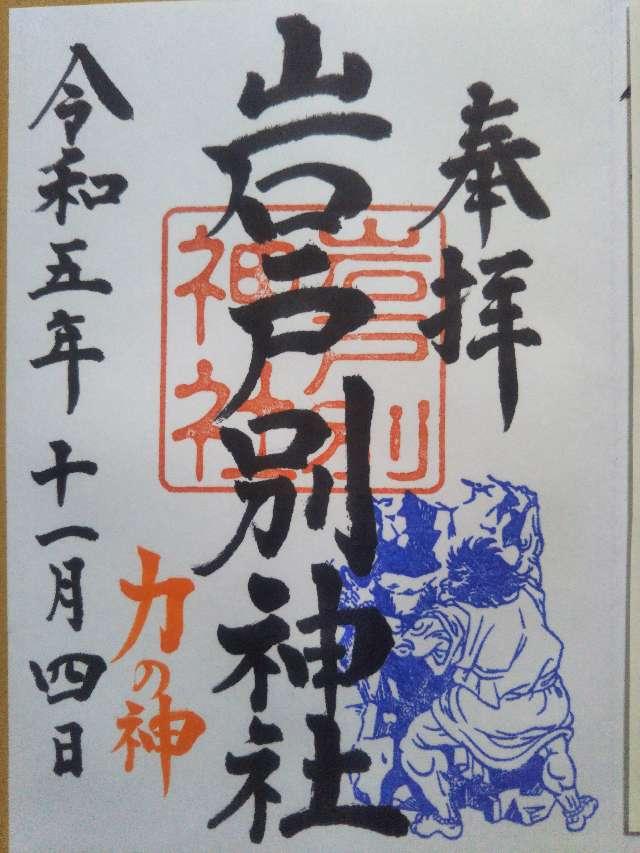 奉拝
岩戸別神社
岩戸別
神社
力の神
令和五年十一月四日